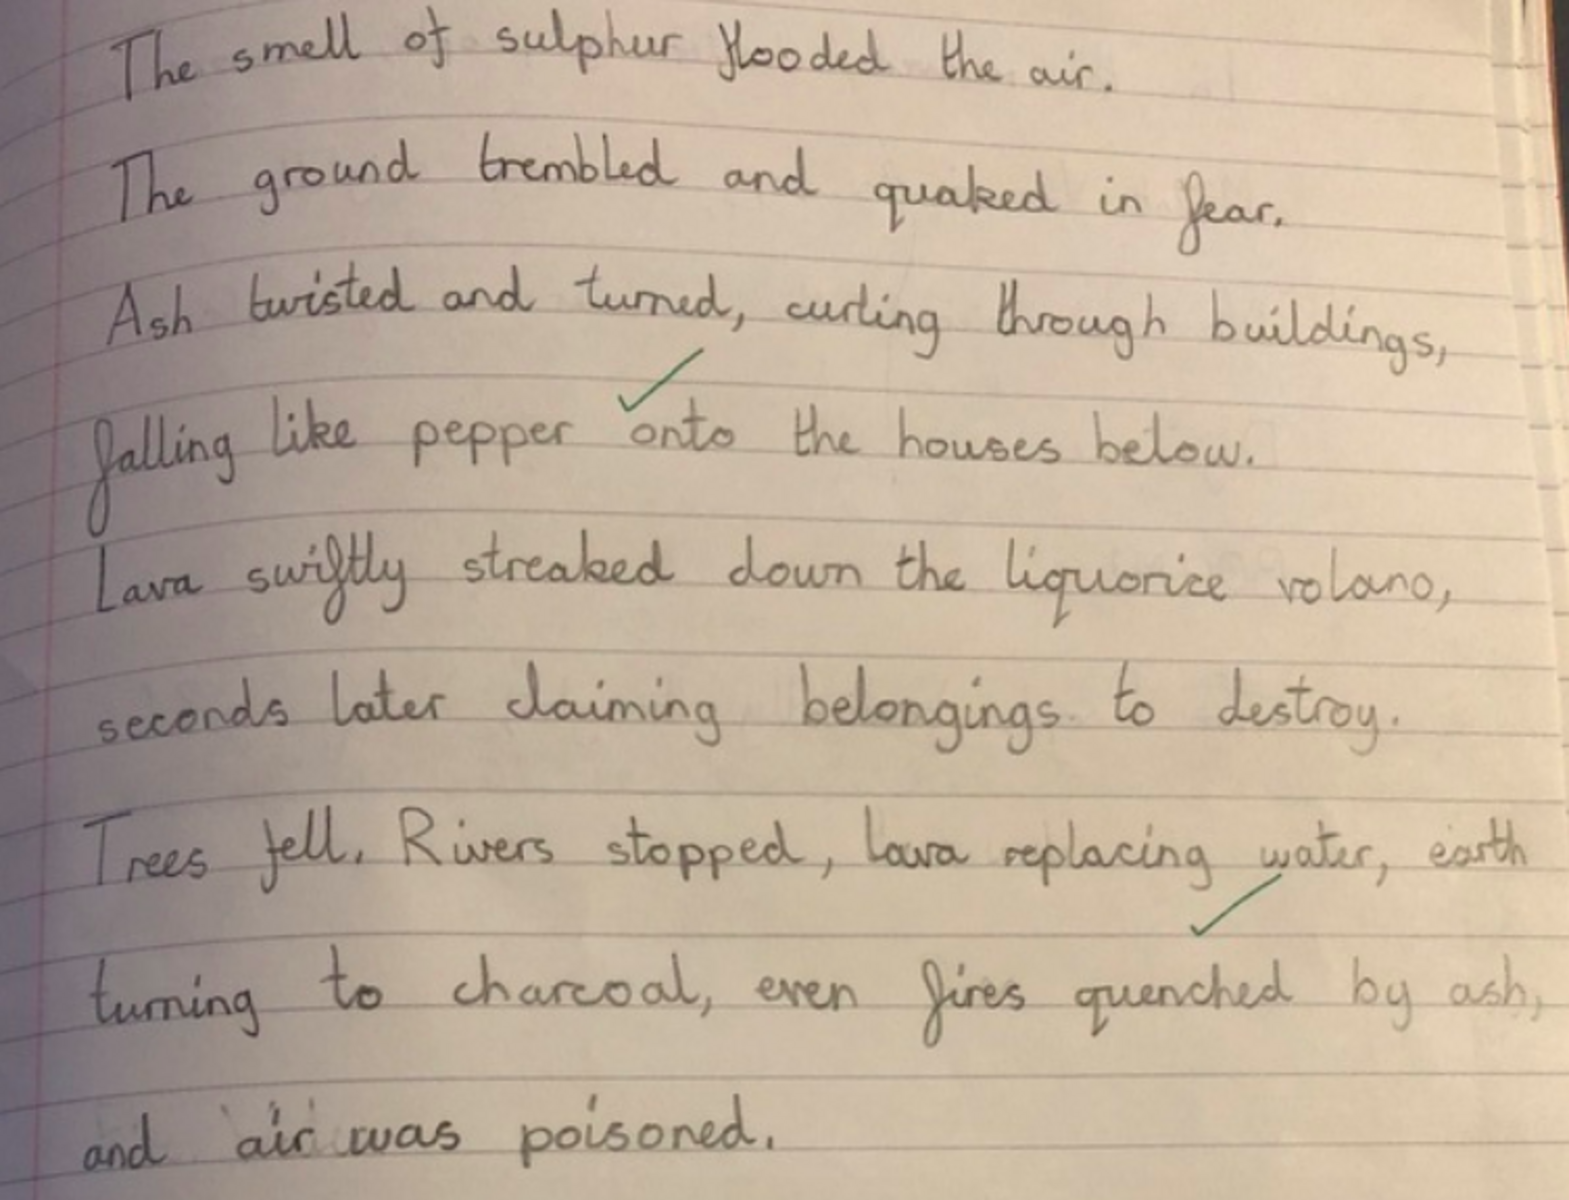 The smell of sulphur flooded the air.
The ground trembled and quaked in fear.
Ash twisted and turned, curling through buildings,
falling like pepper onto the houses below.
Lava swiftly streaked down the liquorice volano,
seconds later claiming belongings to destroy.
Trees fell. Rivers stopped, lava replacing water, earth
turning to charcoal, even fires quenched by ash,
and air was poisoned.